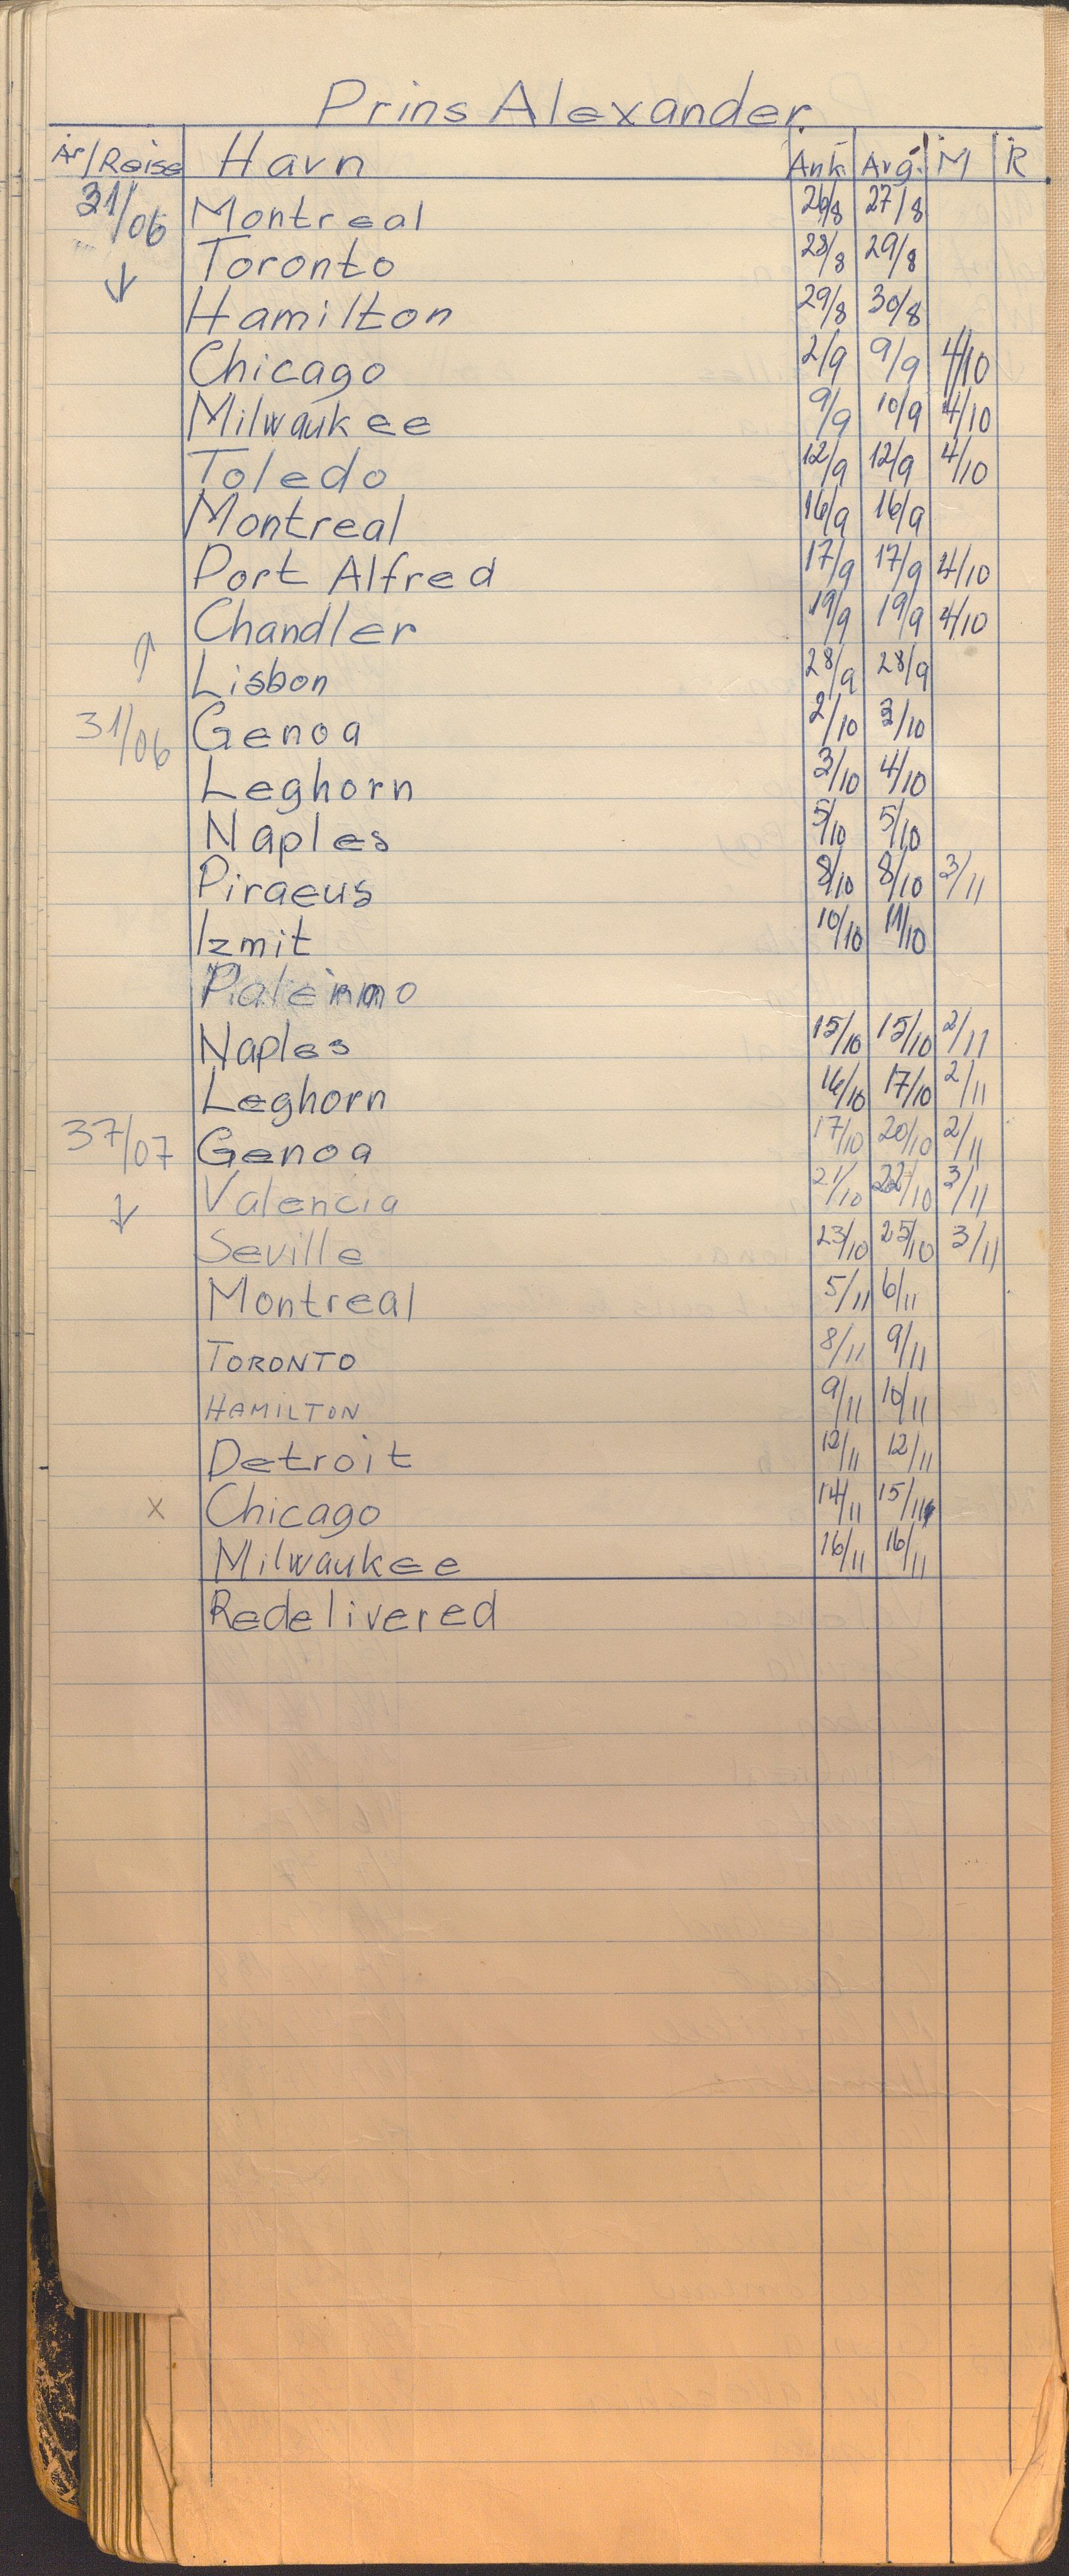 Prins Alexander
År/Reise Havn Ank. Avg. M R
31/06 Montreal 26/8 27/8
↓ Toronto 28/8 29/8
Hamilton 29/8 30/8
Chicago 2/9 9/9 4/10
Milwaukee 9/9 10/9 4/10
Toledo 12/9 12/9 4/10
Montreal 16/9 16/9
Port Alfred 17/9 17/9 4/10
Chandler 19/9 19/9 4/10
↑ Lisbon 28/9 28/9
31/06 Genoa 2/10 3/10
Leghorn 3/10 4/10
Naples 5/10 5/10
Piraeus 8/10 8/10 3/11
Izmit 10/10 11/10
Palermo
Naples 15/10 15/10 2/11
Leghorn 16/10 17/10 2/11
37/07 Genoa 17/10 20/10 2/11
↓ Valencia 21/10 22/10 3/11
Seville 23/10 25/10 3/11
Montreal 5/11 6/11
TORONTO 8/11 9/11
HAMILTON 9/11 10/11
Detroit 12/11 12/11
x Chicago 14/11 15/11
Milwaukee 16/11 16/11
Redelivered